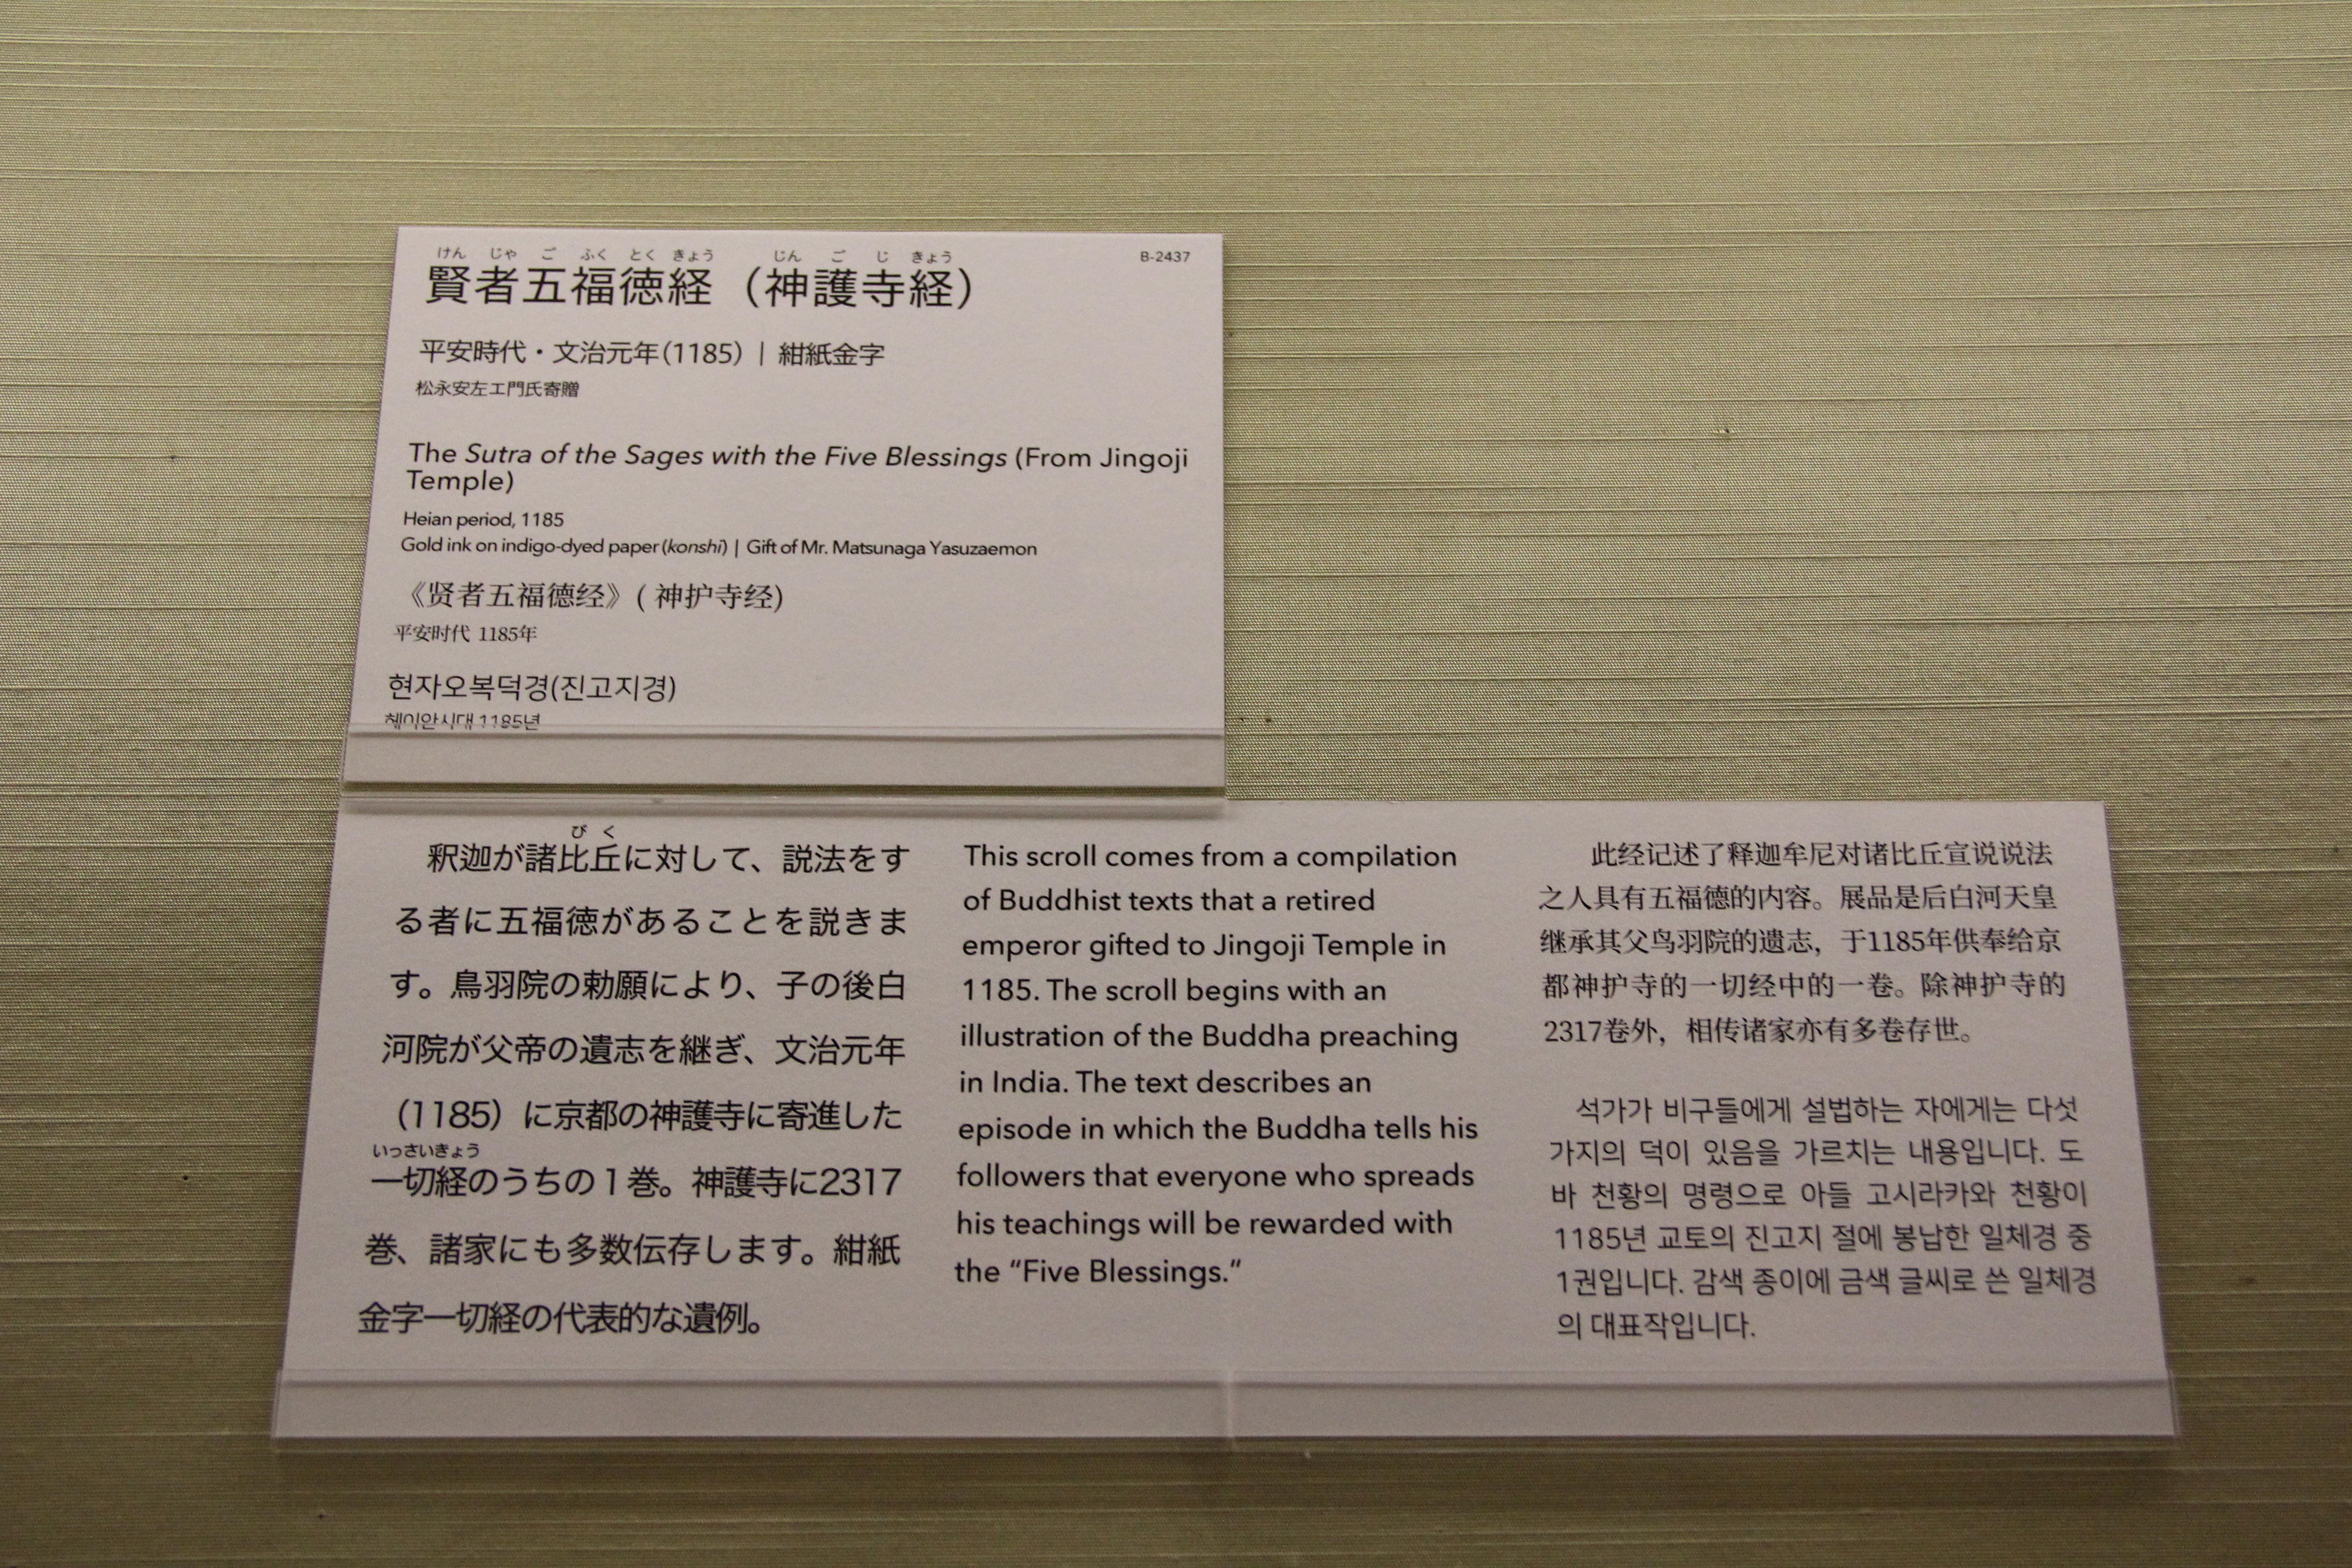 けん じゃ ご ふく とく きょう じん ご じ きょう
賢者五福徳経（神護寺経）
B-2437
平安時代・文治元年(1185)｜紺紙金字
松永安左エ門氏寄贈
The Sutra of the Sages with the Five Blessings (From Jingoji
Temple)
Heian period, 1185
Gold ink on indigo-dyed paper (konshi) | Gift of Mr. Matsunaga Yasuzaemon
《贤者五福德经》( 神护寺经)
平安时代 1185年
현자오복덕경(진고지경)
헤이안시대 1185년
びく
釈迦が諸比丘に対して、説法をす
る者に五福徳があることを説きま
す。鳥羽院の勅願により、子の後白
河院が父帝の遺志を継ぎ、文治元年
（1185）に京都の神護寺に寄進した
いっさいきょう
一切経のうちの１巻。神護寺に2317
巻、諸家にも多数伝存します。紺紙
金字一切経の代表的な遺例。
This scroll comes from a compilation
of Buddhist texts that a retired
emperor gifted to Jingoji Temple in
1185. The scroll begins with an
illustration of the Buddha preaching
in India. The text describes an
episode in which the Buddha tells his
followers that everyone who spreads
his teachings will be rewarded with
the “Five Blessings.”
此经记述了释迦牟尼对诸比丘宣说说法
之人具有五福德的内容。展品是后白河天皇
继承其父鸟羽院的遗志，于1185年供奉给京
都神护寺的一切经中的一卷。除神护寺的
2317卷外，相传诸家亦有多卷存世。
석가가 비구들에게 설법하는 자에게는 다섯
가지의 덕이 있음을 가르치는 내용입니다. 도
바 천황의 명령으로 아들 고시라카와 천황이
1185년 교토의 진고지 절에 봉납한 일체경 중
1권입니다. 감색 종이에 금색 글씨로 쓴 일체경
의 대표작입니다.